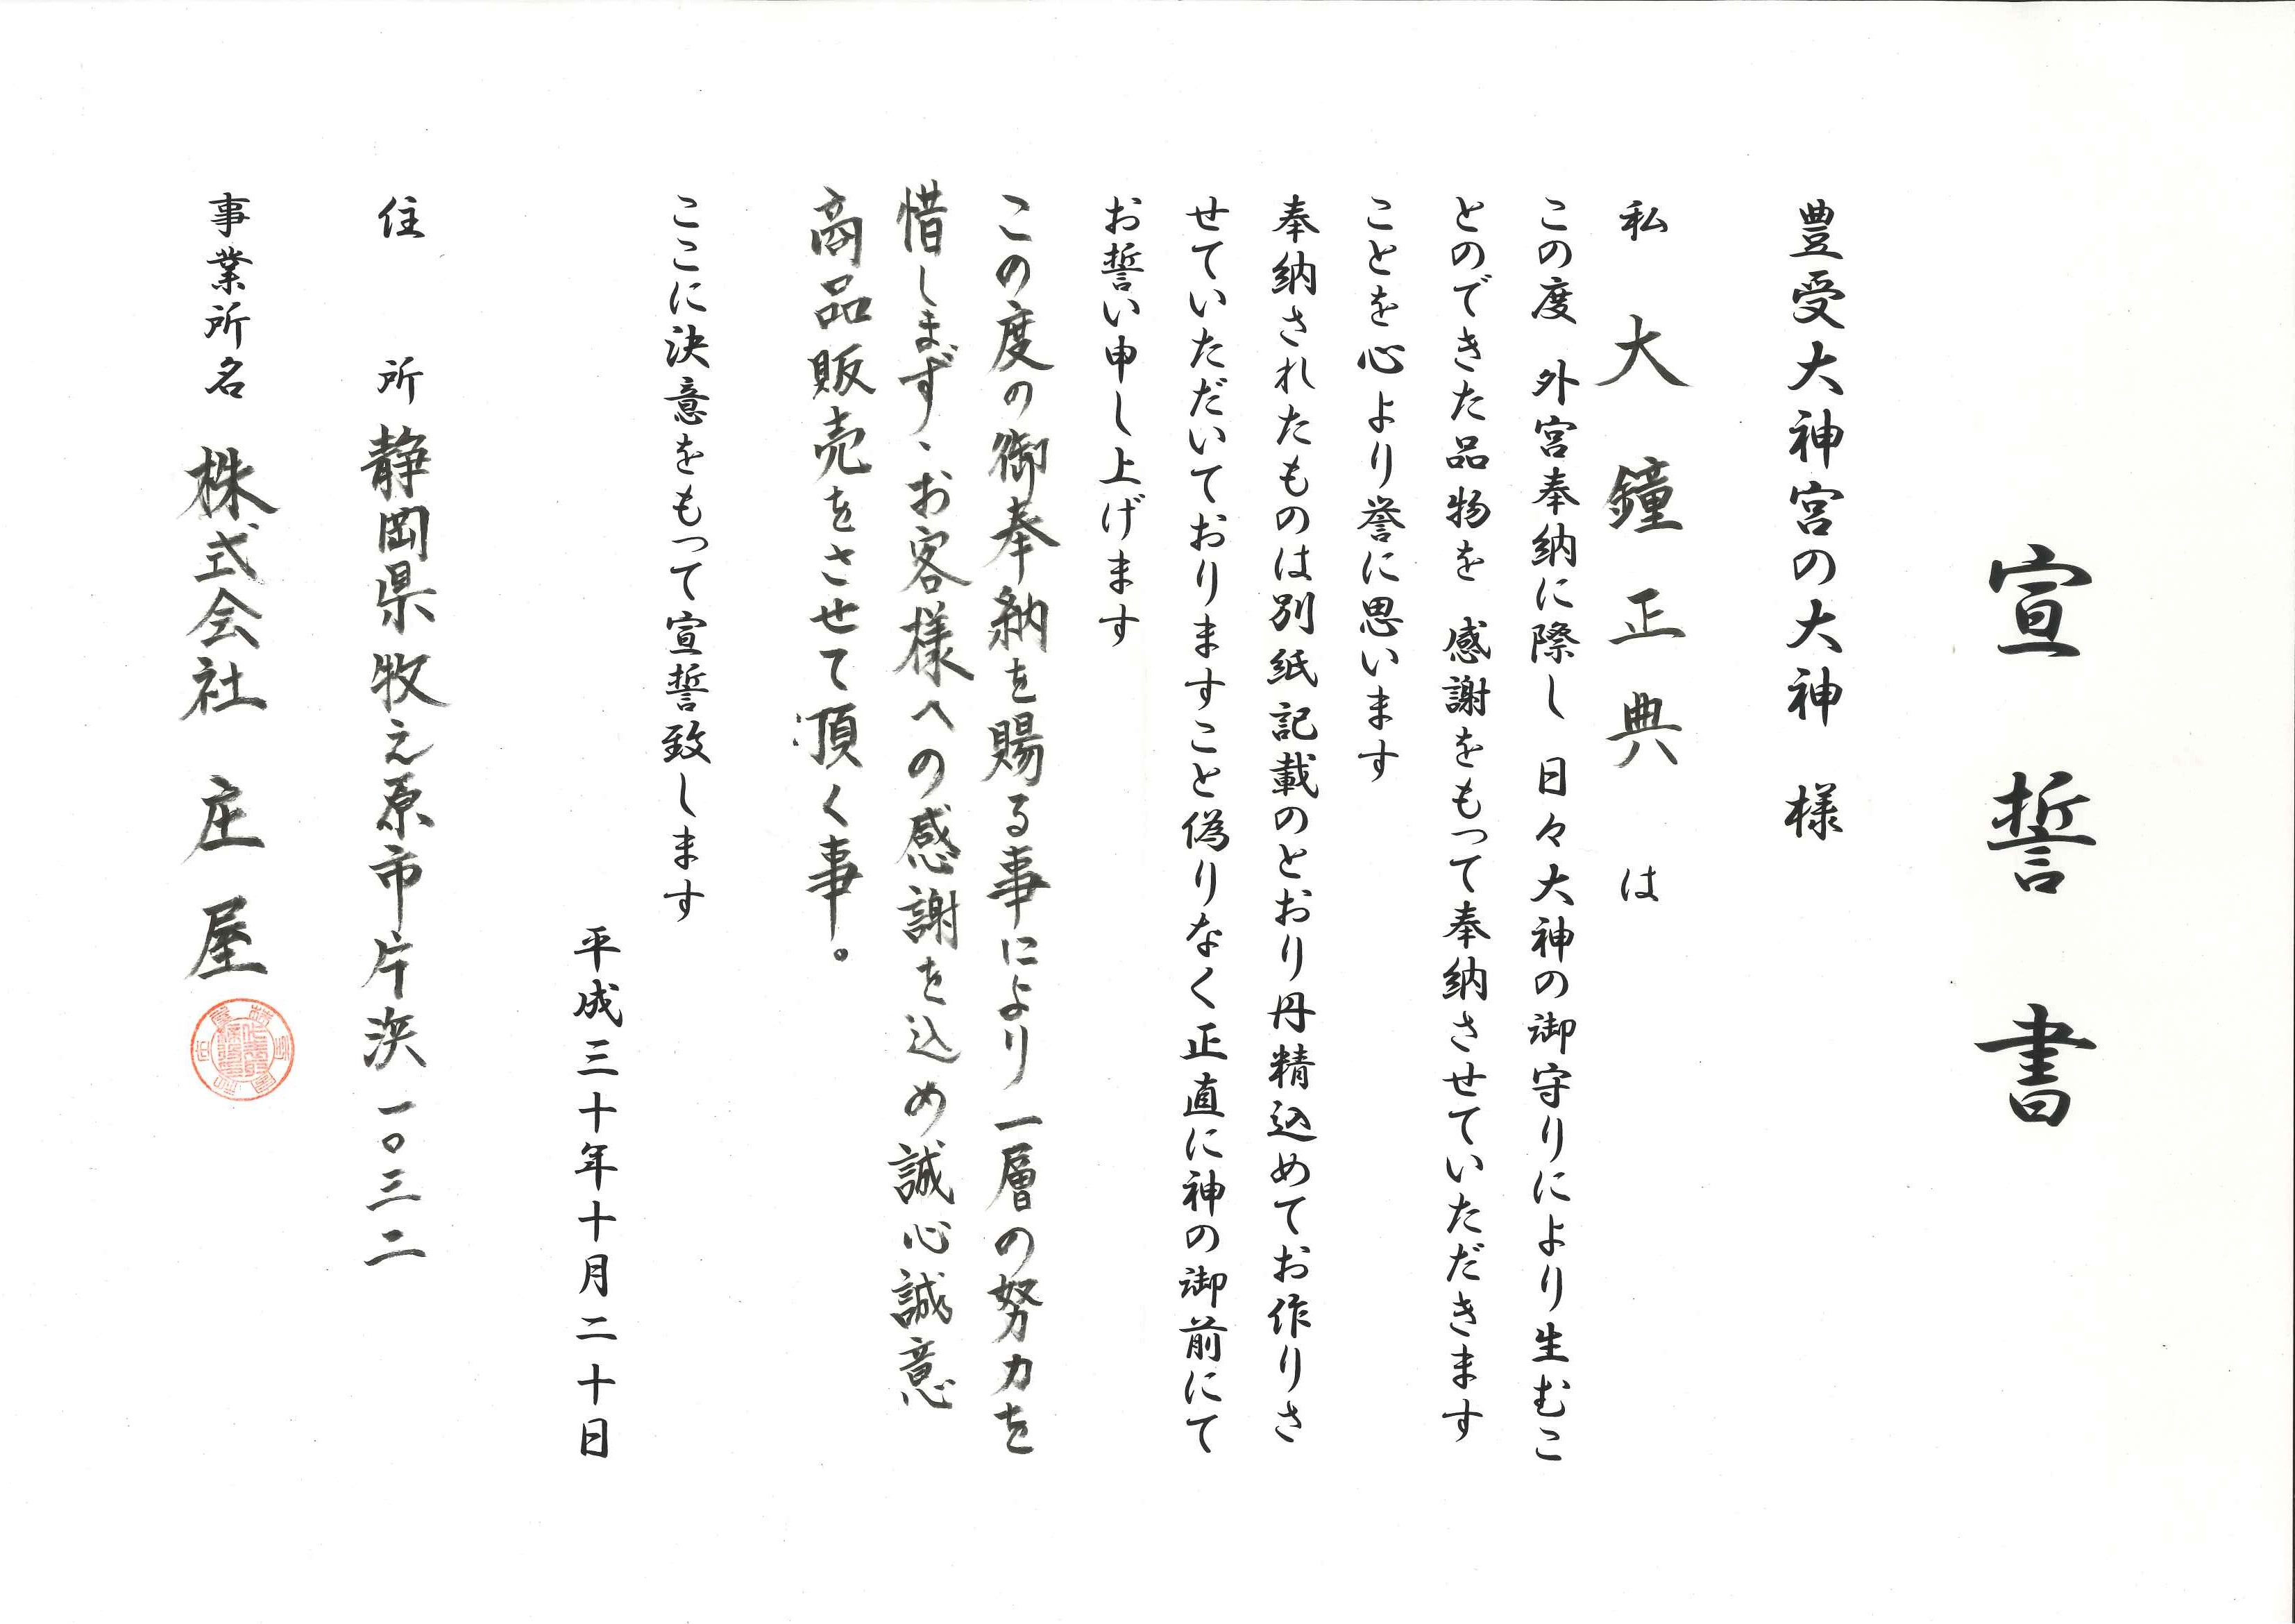 宣誓書
豊受大神宮の大神 様
私 大鐘正典 は
この度 外宮奉納に際し 日々大神の御守りにより生むこ
とのできた品物を 感謝をもって奉納させていただきます
ことを心より誉に思います
奉納されたものは別紙記載のとおり丹精込めてお作りさ
せていただいておりますこと偽りなく正直に神の御前にて
お誓い申し上げます
この度の御奉納を賜る事により一層の努力を
惜しまず、お客様への感謝を込め誠心誠意
商品販売をさせて頂く事。
ここに決意をもって宣誓致します
平成三十年十月二十日
住 所 静岡県牧之原市片浜一〇三二
事業所名 株式会社 庄屋